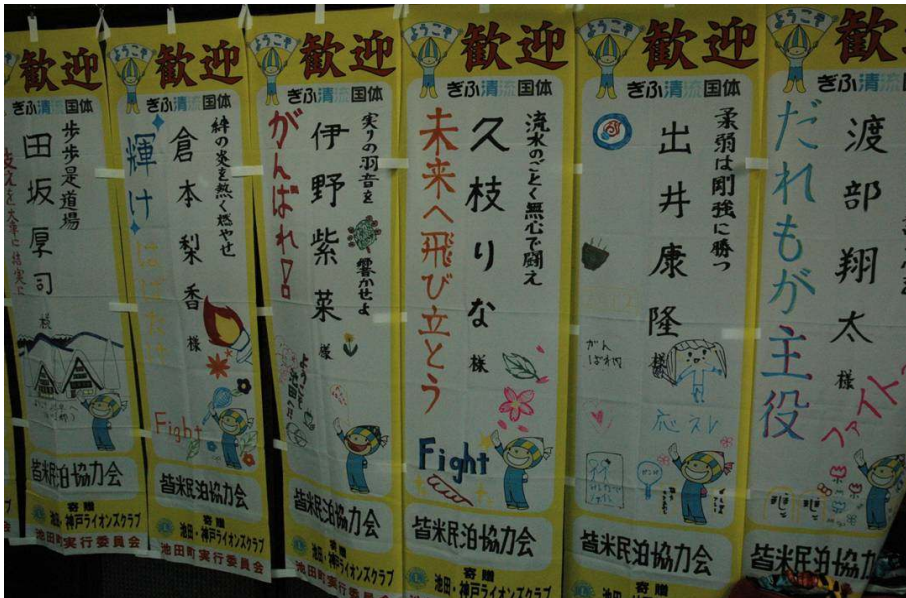 ようこそ
歓迎
ぎふ清流国体
歩歩是道場
田坂厚司 様
皆米民泊協力会
寄贈
池田・神戸ライオンズクラブ
池田町実行委員会
ようこそ
歓迎
ぎふ清流国体
絆の炎を熱く燃やせ
倉本梨香 様
輝け
はばたけ
Fight
皆米民泊協力会
寄贈
池田・神戸ライオンズクラブ
池田町実行委員会
ようこそ
歓迎
ぎふ清流国体
実りの羽音を響かせよ
伊野紫菜 様
がんばれ!
皆米民泊協力会
寄贈
池田・神戸ライオンズクラブ
池田町実行委員会
ようこそ
歓迎
ぎふ清流国体
流水のごとく無心で闘え
久枝りな 様
未来へ飛び立とう
Fight
皆米民泊協力会
寄贈
池田・神戸ライオンズクラブ
ようこそ
歓迎
ぎふ清流国体
柔弱は剛強に勝つ
出井康隆 様
がん
ばれ
皆米民泊協力会
寄贈
池田・神戸ライオンズクラブ
ようこそ
歓
ぎふ清流国体
渡部翔太 様
だれもが主役
ファイト
皆米民泊協力
寄贈